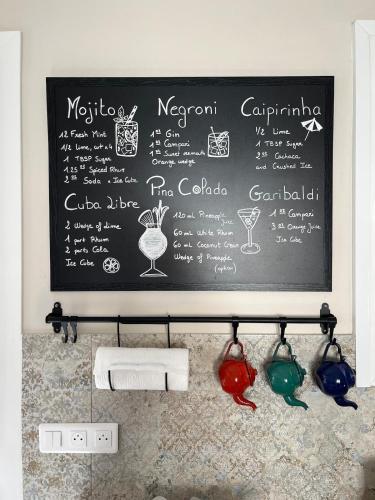 Mojito
12 Fresh Mint
1/2 lime, cut x4
1 TBSP Sugar
1.25 oz Spiced Rhum
2 oz Soda + Ice Cube
Negroni
1 oz Gin
1 oz Campari
1 oz Sweet vermouth
Orange wedge
Caipirinha
1/2 Lime
1 TBSP Sugar
2 oz Cachaca
and Crushed Ice
Cuba Libre
2 Wedge of Lime
1 part Rhum
2 parts Cola
Ice Cube
Pina Colada
120 mL Pineapple Juice
60 mL White Rhum
60 mL Coconut Cream
Wedge of Pineapple
(option)
Garibaldi
1 oz Campari
3 oz Orange Juice
Ice Cube